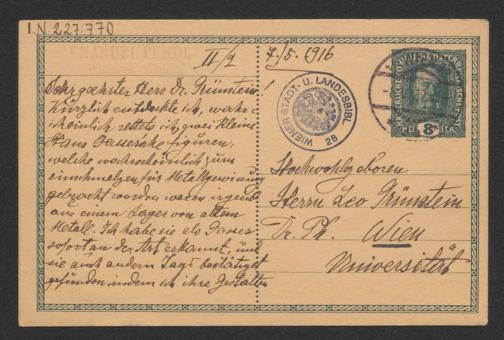 I.N. 227.770
II/2
7./5. 1916
Sehr geehrter Herr Dr. Grünstein!
Kürzlich entdeckte ich, wahr-
scheinlich rettete ich, zwei kleine
Hans Gasser'sche Figuren,
welche wahrscheinlich zum
einschmelzen für Metallgewinnung
gebracht worden waren
aus einem Lager von altem
Metall. Ich habe sie als Gasser
sofort an der Art erkannt, und
sie auch andern Tags bestätigt
gefunden indem ich ihre Gestalten
WIENER STADT- U. LANDESBIBL.
28
8
Hochwohlgeboren
Herrn Leo Grünstein
Dr. Ph. Wien
Universität